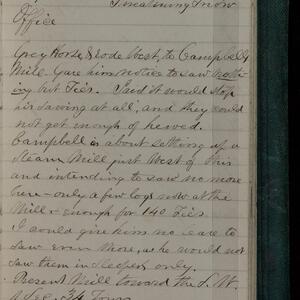 Office
Grey Horse & rode West, to Campbells
Mill. Gave him notice to saw noth-
ing but Ties. Said it would stop
his sawing at all, and they could
not get enough of hewed.
Campbell is about setting up a
Steam Mill just West of this
and intending to saw no more
here - only a few logs now at the
Mill & enough for 140 Ties.
I could give him no leave to
saw even those, as he would not
saw them in sleepers only.
Present Mill toward the S.W.